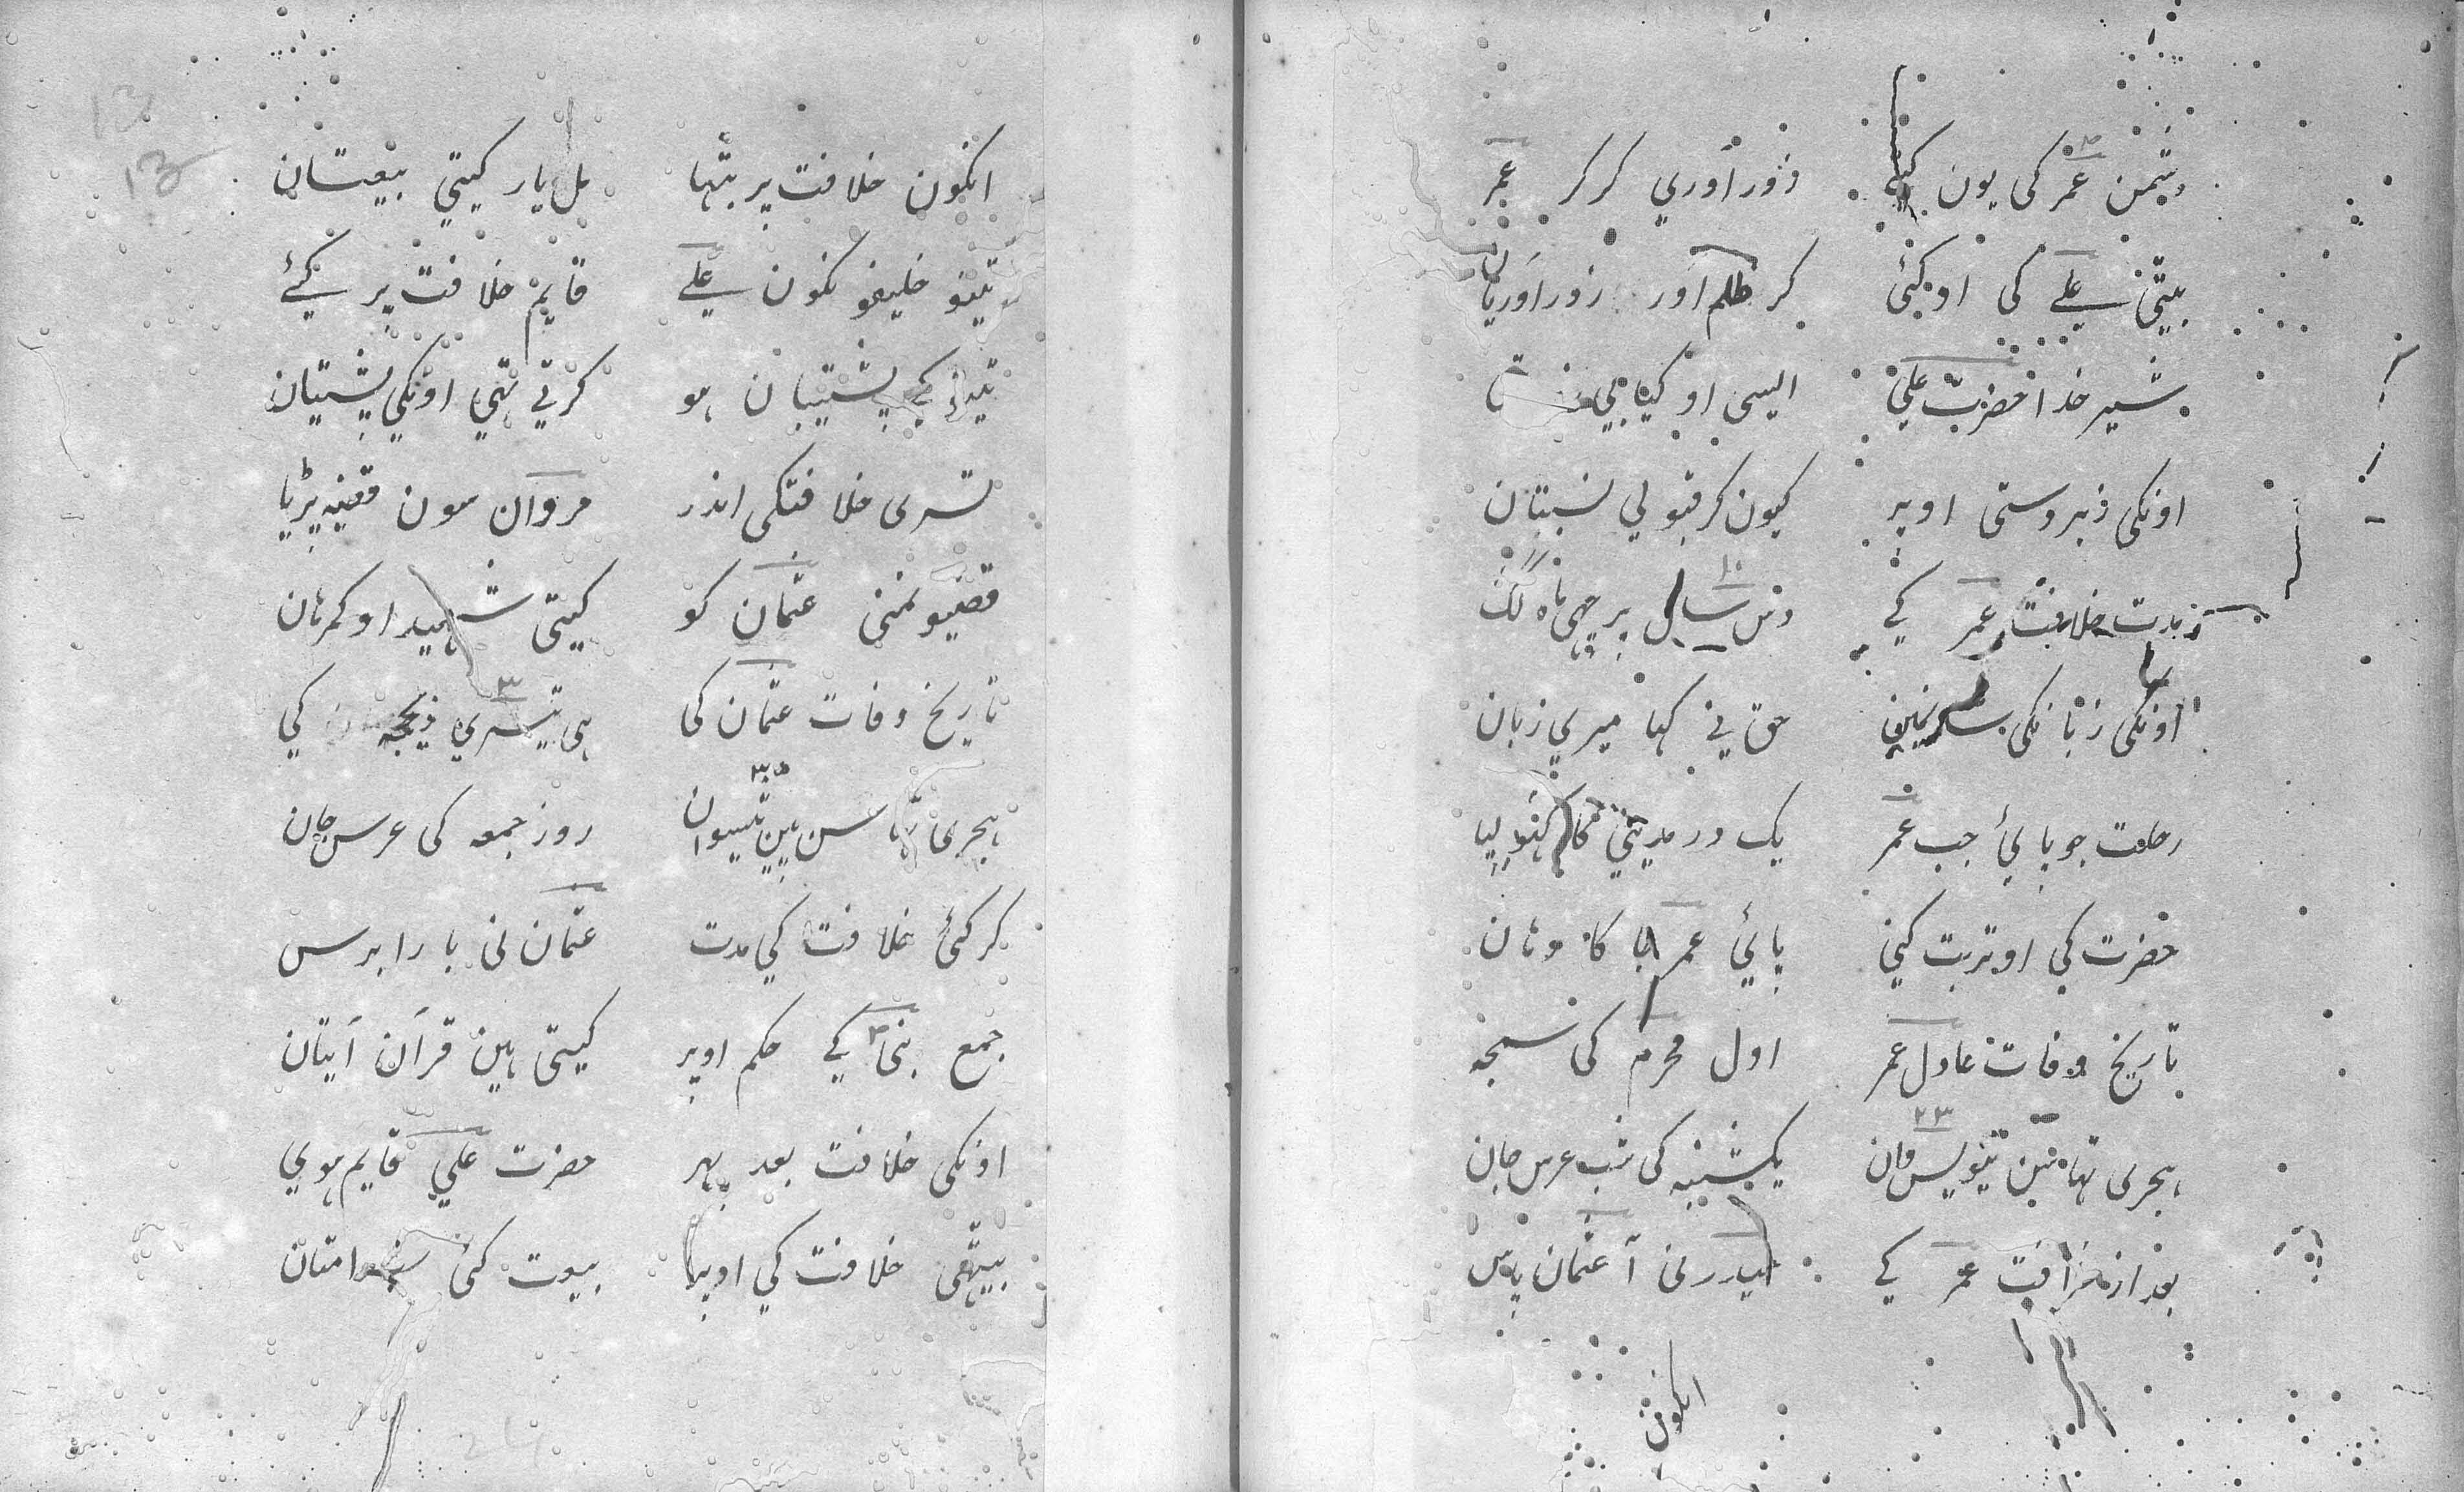 دشمن عمر کی یون کہی زور آوری کر کر عمر
بیٹی علی کی او کئی کر ظلم اور زور آوریان
شیر خدا حضرت علی ایسی او کیا ہی
اونکی زبردستی اوپر کیون کر قبولی نسبتان
مدت خلافت عمر کی دس سال پر چھی ماہ لگ
۱۰
اونکی زبانکی حق نی کہا میری زبان
رحلت جو پائی جب عمر یک در مدینی کا
حضرت کی او تربت کنی پائی عمر جا کا وہان
تاریخ وفات عادل عمر اول محرم کی سمجہ
۲۳
ہجری تہا سن تیویس وان یکشنبہ کی شب عرس جان
بعد از خلافت عمر کی حیدر نی آ عثمان پاس
انکون
انکون خلافت پر بٹہا مل یار کیتی بیعتان
تینو خلیفو نکون علی قایم خلافت پر کیئے
تینونکی پشتیبان ہو کرتی تہی اونکی پشتیان
تسری خلافتکی اندر مروان سون قضیہ پڑیا
قضیو منی عثمان کو کیتی شہید او کمرہان
تاریخ وفات عثمان کی ہی تیسری ذیحجہ کی
۳
۳۰
ہجری تہا سن تیسوان روز جمعہ کی عرس جان
کر گئی خلافت کی مدت عثمان نی بارا برس
جمع نبی کی حکم اوپر کیتی ہین قرآن آیتان
اونکی خلافت بعد پہر حضرت علی قایم ہوی
بیٹھی خلافت کی اوپر بیعت کئی سب امتان
13
13